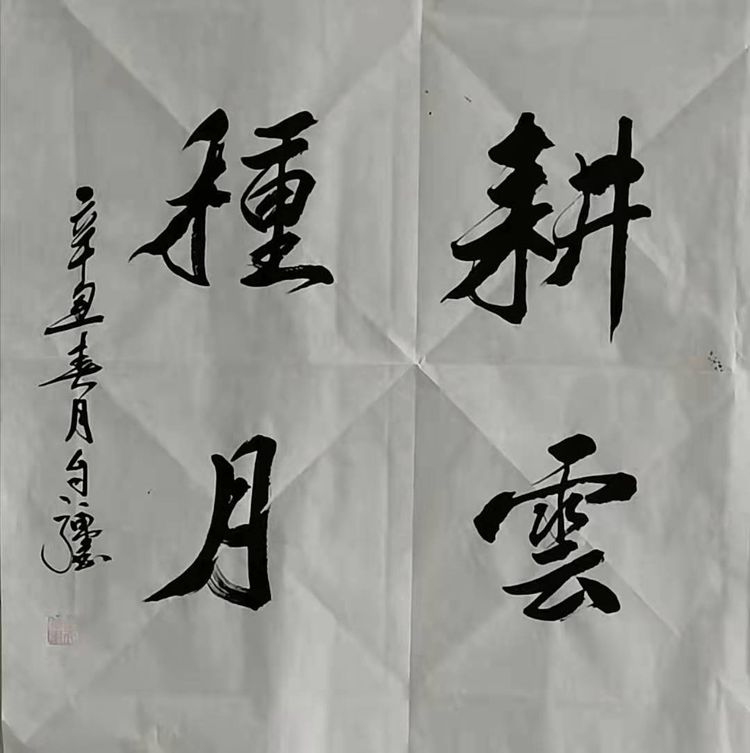 耕雲
種月
辛丑春月自強